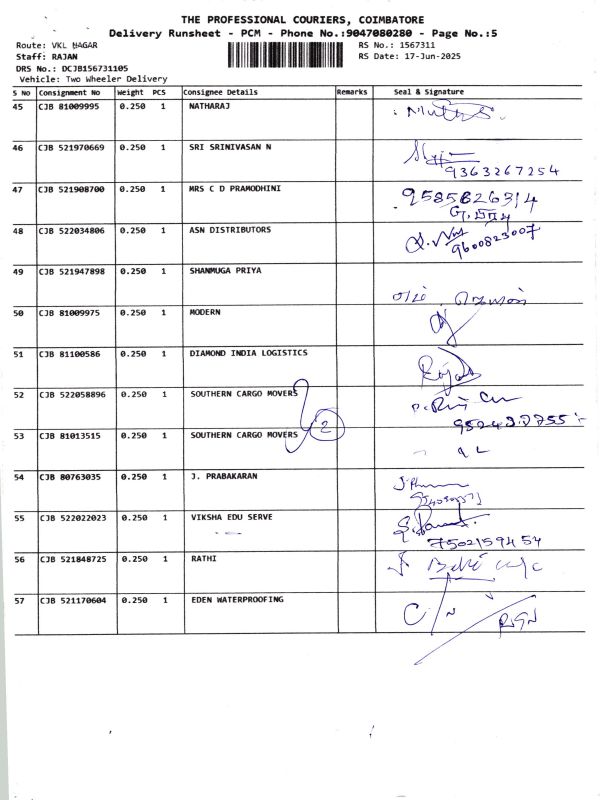 THE PROFESSIONAL COURIERS, COIMBATORE
Delivery Runsheet - PCM - Phone No.:9047080280 - Page No.:5
Route: VKL NAGAR
Staff: RAJAN
DRS No.: DCJB156731105
Vehicle: Two Wheeler Delivery
RS No.: 1567311
RS Date: 17-Jun-2025
S No Consignment No Weight PCS Consignee Details Remarks Seal & Signature
45 CJB 81009995 0.250 1 NATHARAJ
46 CJB 521970669 0.250 1 SRI SRINIVASAN N
9363267254
47 CJB 521908700 0.250 1 MRS C D PRAMODHINI
48 CJB 522034806 0.250 1 ASN DISTRIBUTORS
9600823007
49 CJB 521947898 0.250 1 SHANMUGA PRIYA
50 CJB 81009975 0.250 1 MODERN
51 CJB 81100586 0.250 1 DIAMOND INDIA LOGISTICS
52 CJB 522058896 0.250 1 SOUTHERN CARGO MOVERS
2
53 CJB 81013515 0.250 1 SOUTHERN CARGO MOVERS
54 CJB 80763035 0.250 1 J. PRABAKARAN
55 CJB 522022023 0.250 1 VIKSHA EDU SERVE
7502159454
56 CJB 521848725 0.250 1 RATHI
57 CJB 521170604 0.250 1 EDEN WATERPROOFING